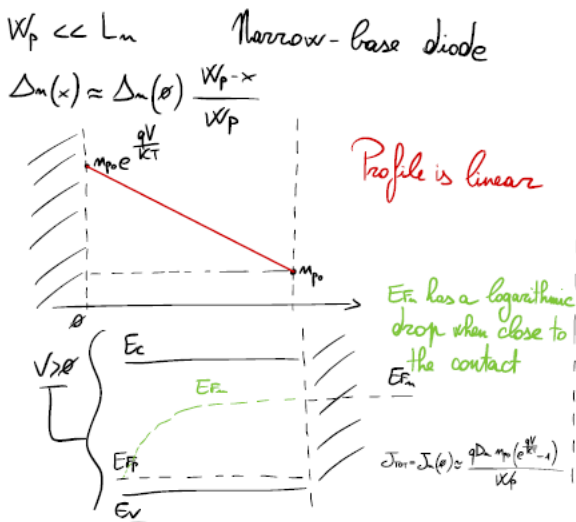 Wp << Ln Narrow-base diode
Δn(x) ≈ Δn(ø) Wp-x / Wp
npo e^(qV/KT)
Profile is linear
npo
ø
EFn has a logarithmic
drop when close to
the contact
V>ø
Ec
EFn
EFn
EFp
Ev
JTOT = Jn(ø) ≈ qDn npo (e^(qV/KT) -1) / Wp